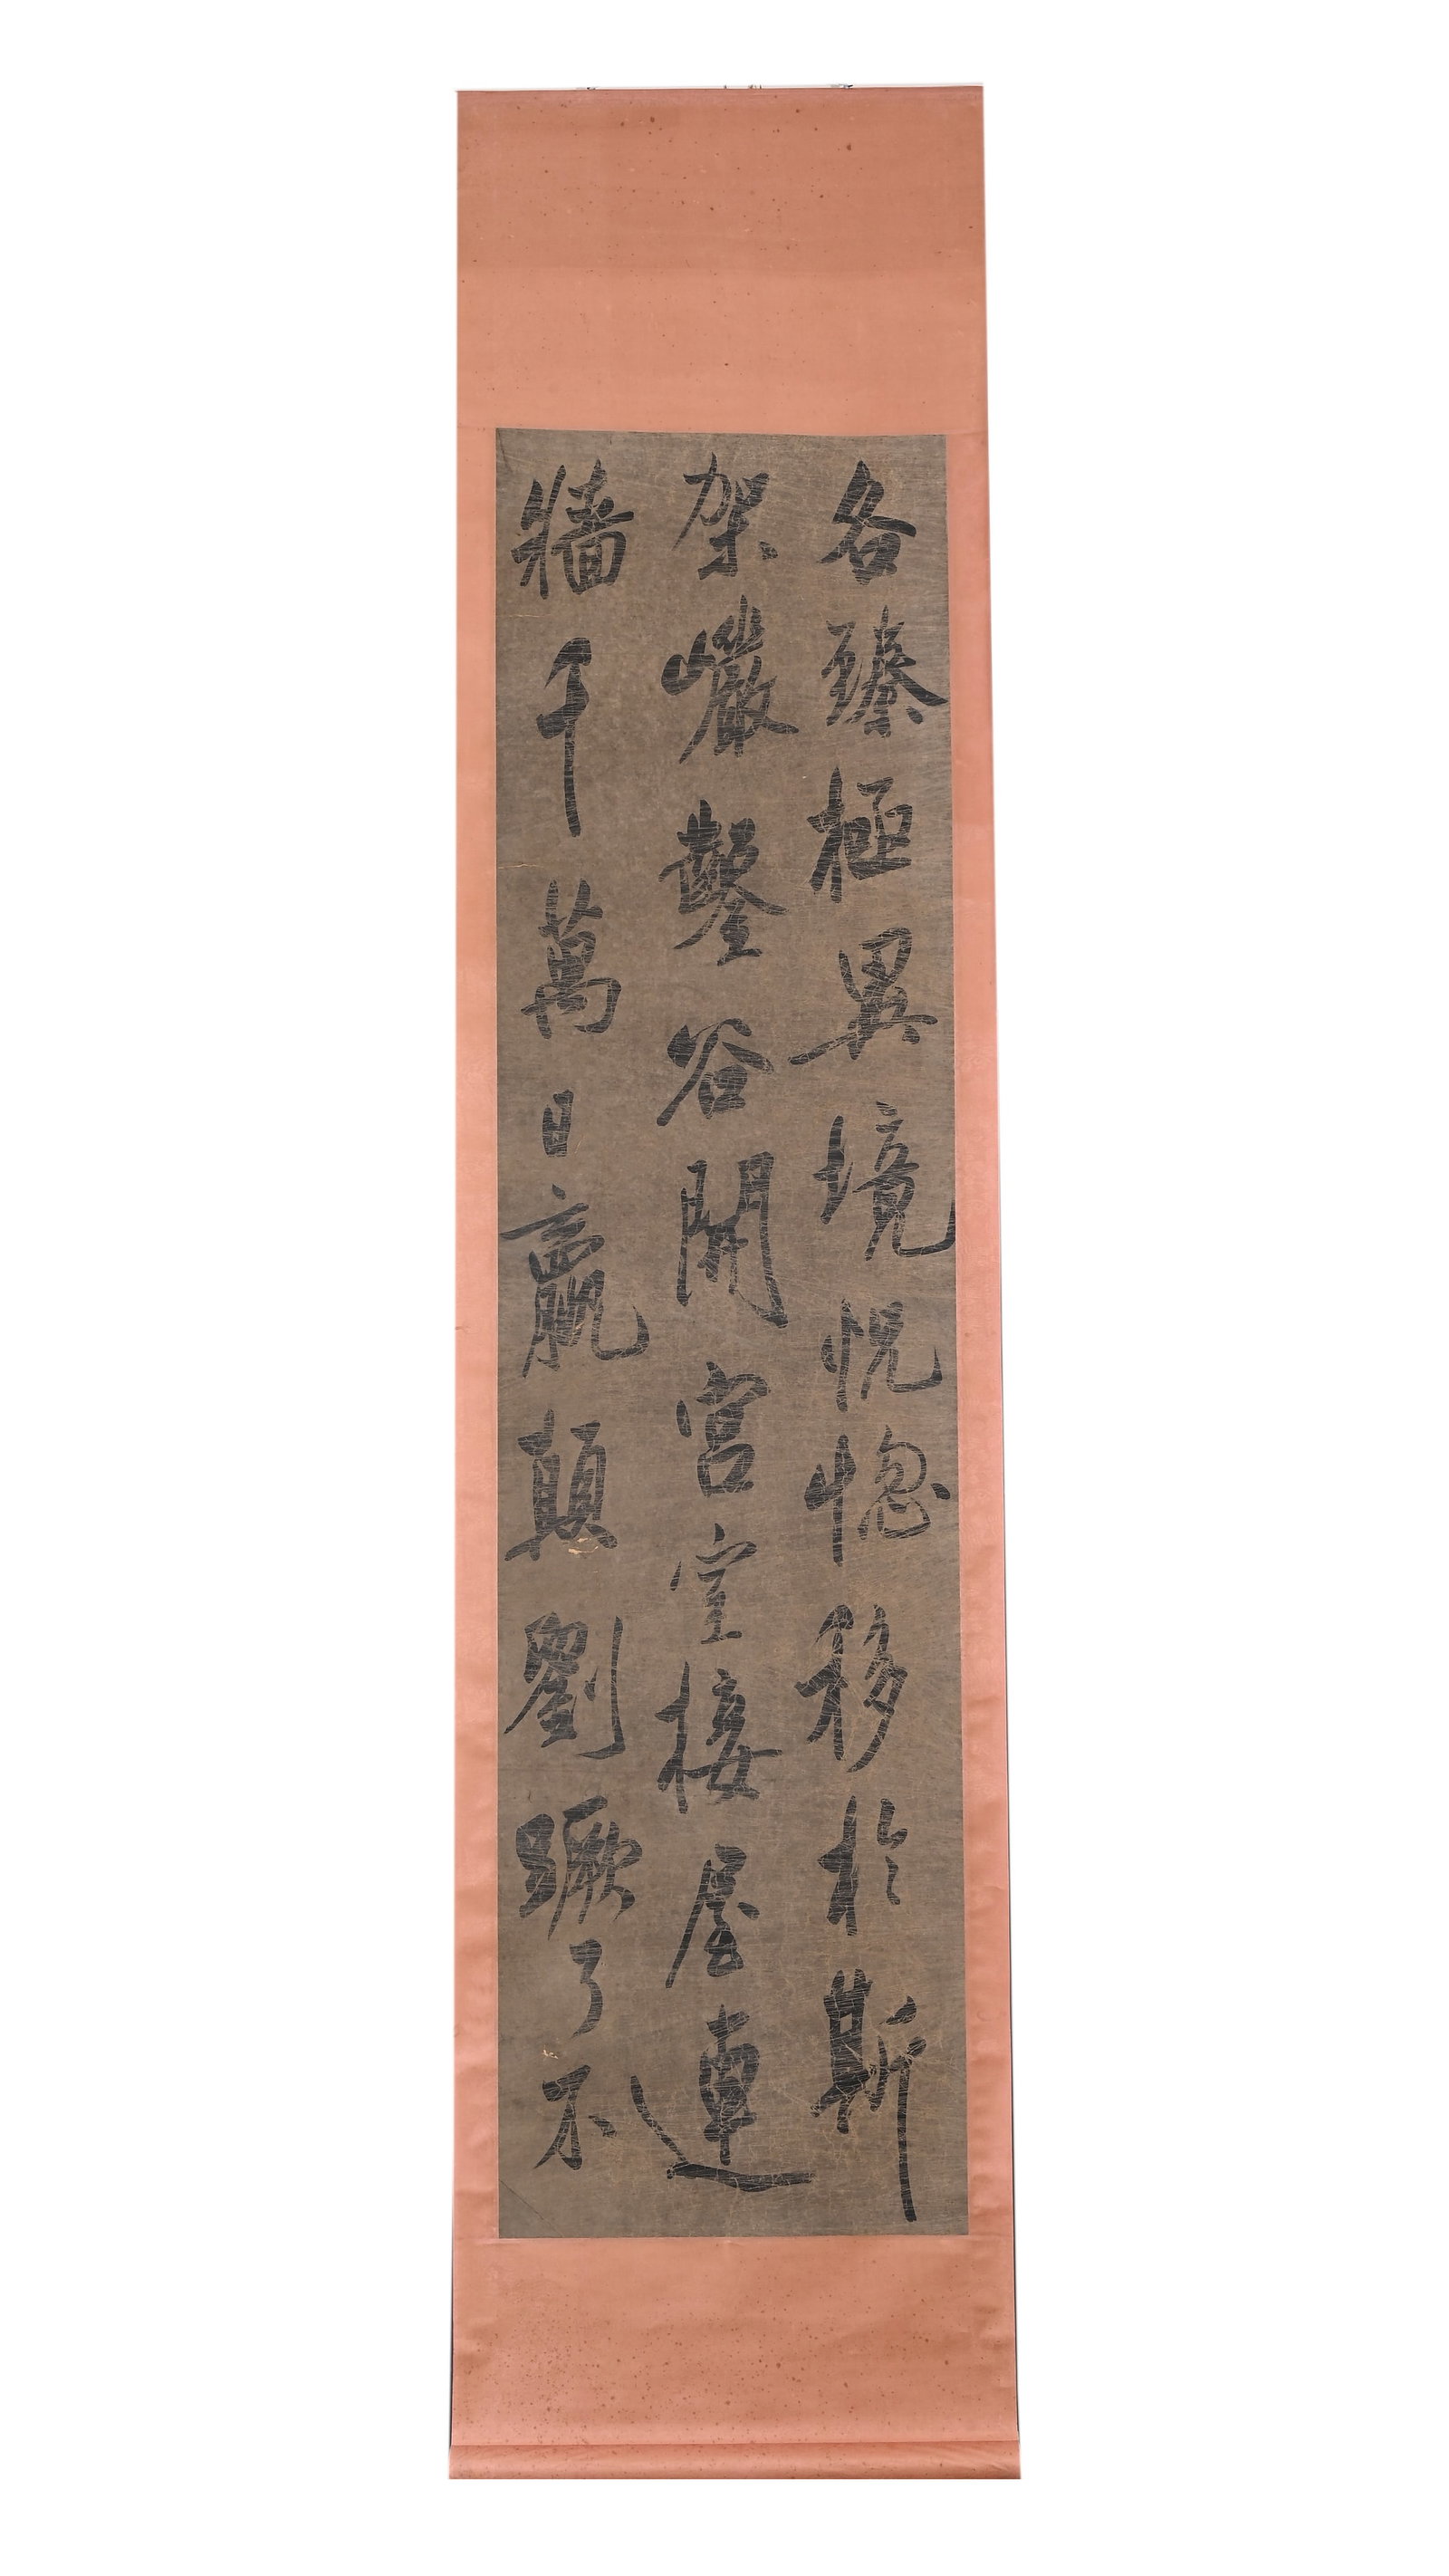 各臻極異境恍惚移於斯
架巖鑿谷開宮室接屋連
牆千萬日嬴顛劉蹶了不